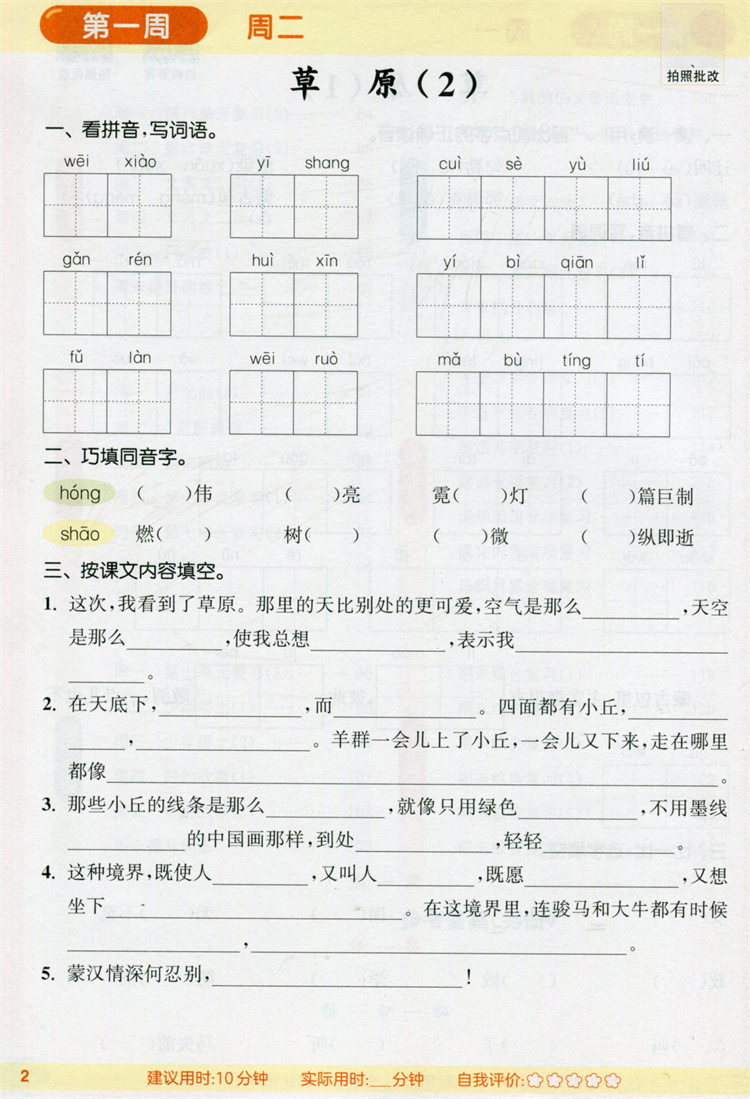 第一周 周二
草 原(2)
拍照批改
一、看拼音,写词语。
wēi xiào yī shang cuì sè yù liú
gǎn rén huì xīn yí bì qiān lǐ
fǔ làn wēi ruò mǎ bù tíng tí
二、巧填同音字。
hóng ( )伟 ( )亮 霓( )灯 ( )篇巨制
shāo 燃( ) 树( ) ( )微 ( )纵即逝
三、按课文内容填空。
1. 这次,我看到了草原。那里的天比别处的更可爱,空气是那么________,天空
是那么________,使我总想________,表示我________
________。
2. 在天底下,________,而________。四面都有小丘,________
________,________。羊群一会儿上了小丘,一会儿又下来,走在哪里
都像________。
3. 那些小丘的线条是那么________,就像只用绿色________,不用墨线
________的中国画那样,到处________,轻轻________。
4. 这种境界,既使人________,又叫人________,既愿________,又想
坐下________。在这境界里,连骏马和大牛都有时候
________,________。
5. 蒙汉情深何忍别,________!
2 建议用时:10分钟 实际用时:__分钟 自我评价:☆☆☆☆☆